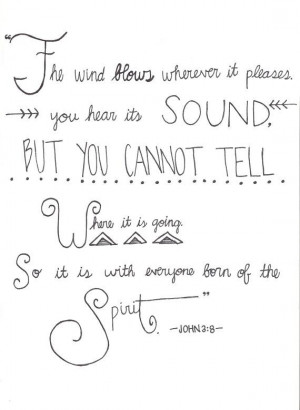 "The wind blows wherever it pleases.
you hear its SOUND,
BUT YOU CANNOT TELL
Where it is going.
So it is with everyone born of the
Spirit."
-JOHN 3:8-